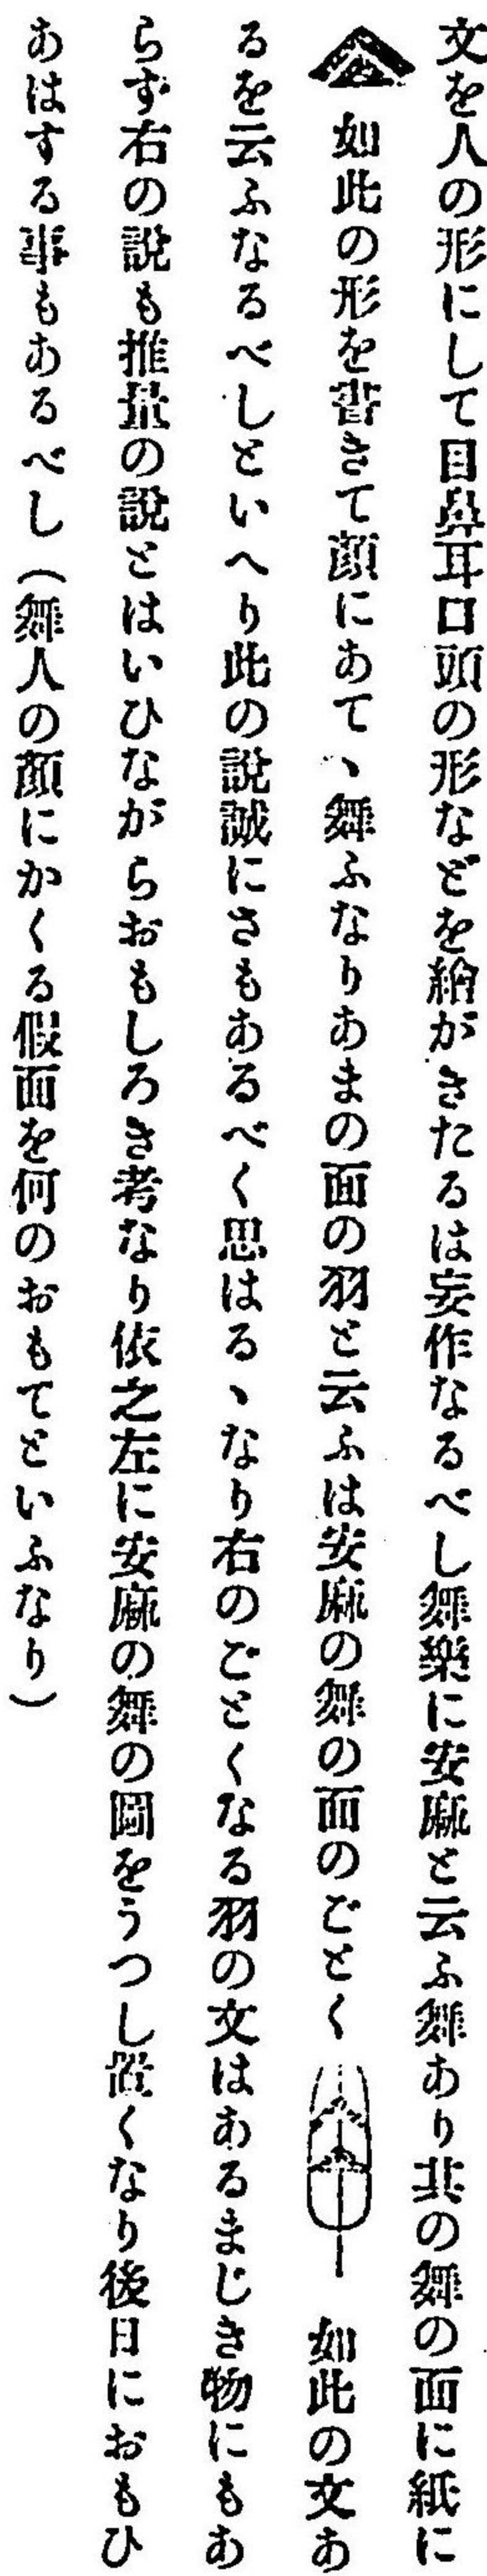 文を人の形にして目鼻耳口頭の形などを繪がきたるは妄作なるべし舞樂に安麻と云ふ舞あり其の舞の面に紙に
如此の形を書きて顏にあて、舞ふなりあまの面の羽と云ふは安麻の舞の面のごとく如此の文あ
るを云ふなるべしといへり此の說誠にさもあるべく思はる、なり右のごとくなる羽の文はあるまじき物にもあ
らず右の說も推量の說とはいひながらおもしろき考なり依之左に安麻の舞の圖をうつし置くなり後日におもひ
あはする事もあるべし(舞人の顏にかくる假面を何のおもてといふなり)